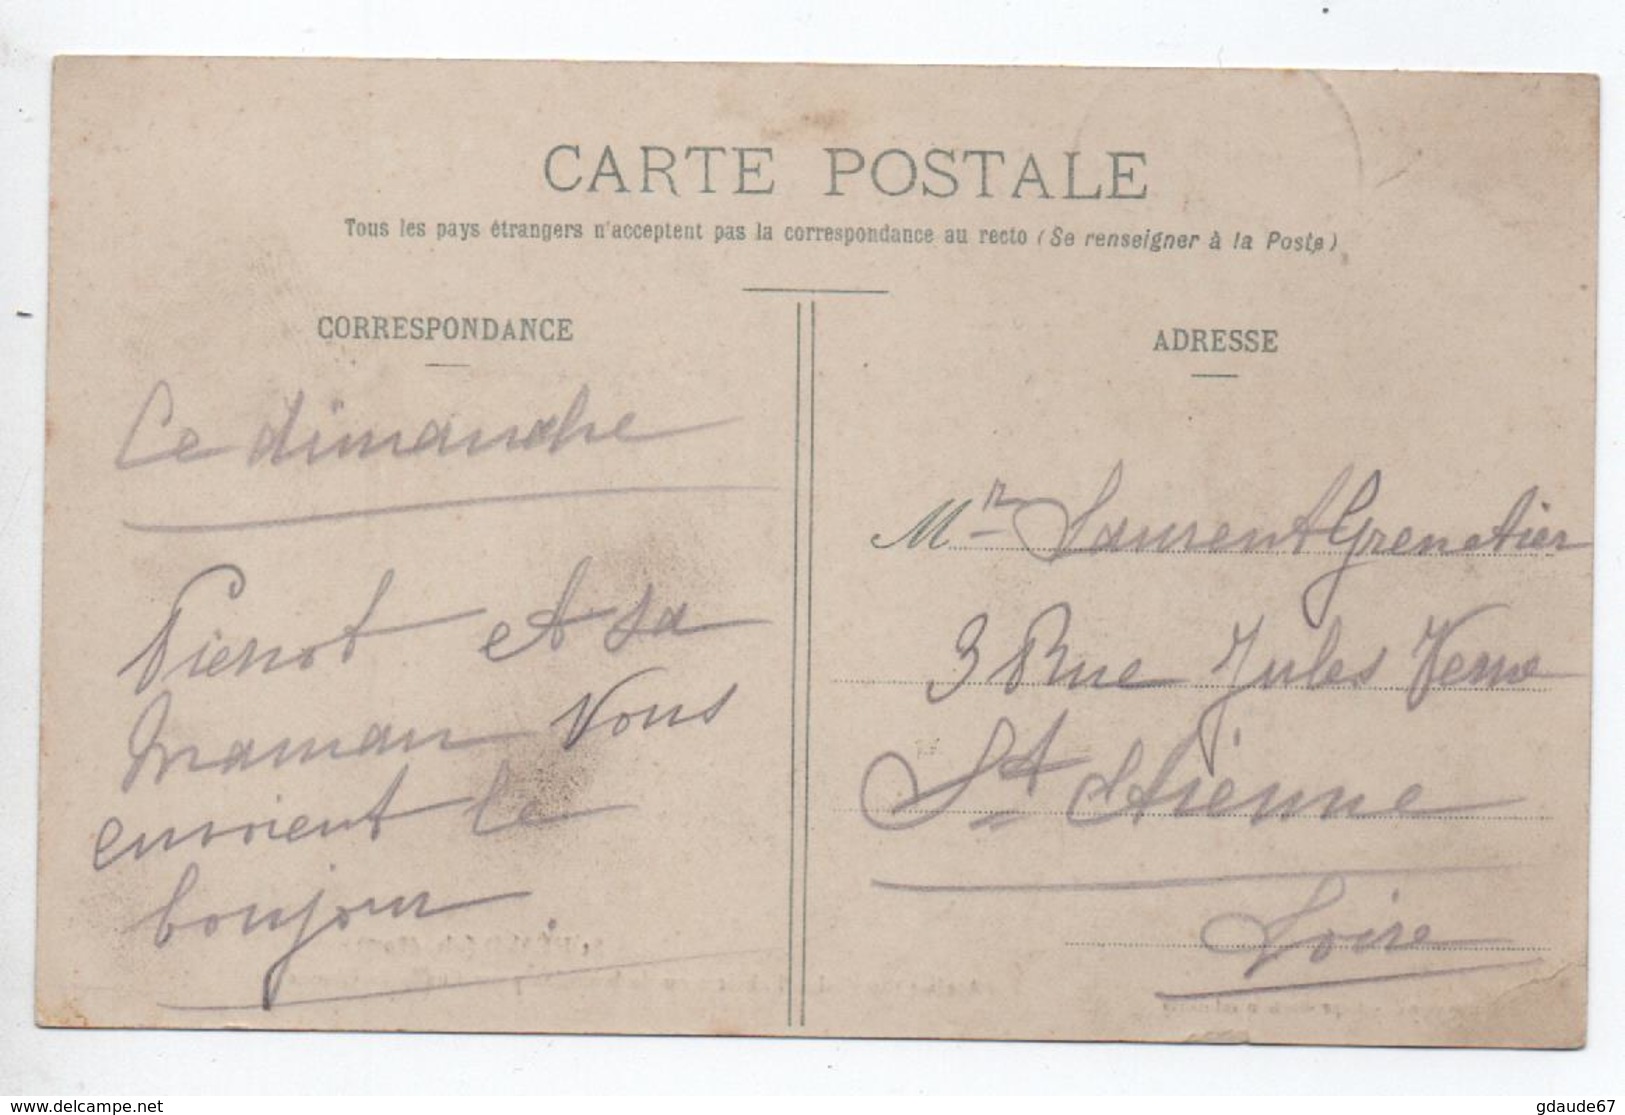 CARTE POSTALE
Tous les pays étrangers n'acceptent pas la correspondance au recto (Se renseigner à la Poste)
CORRESPONDANCE
Ce dimanche
Pierrot et sa
maman vous
envoient le
bonjour
ADRESSE
Mr Laurent Grenetier
3 Rue Jules Verne
St Etienne
Loire
www.delcampe.net
gdaude67